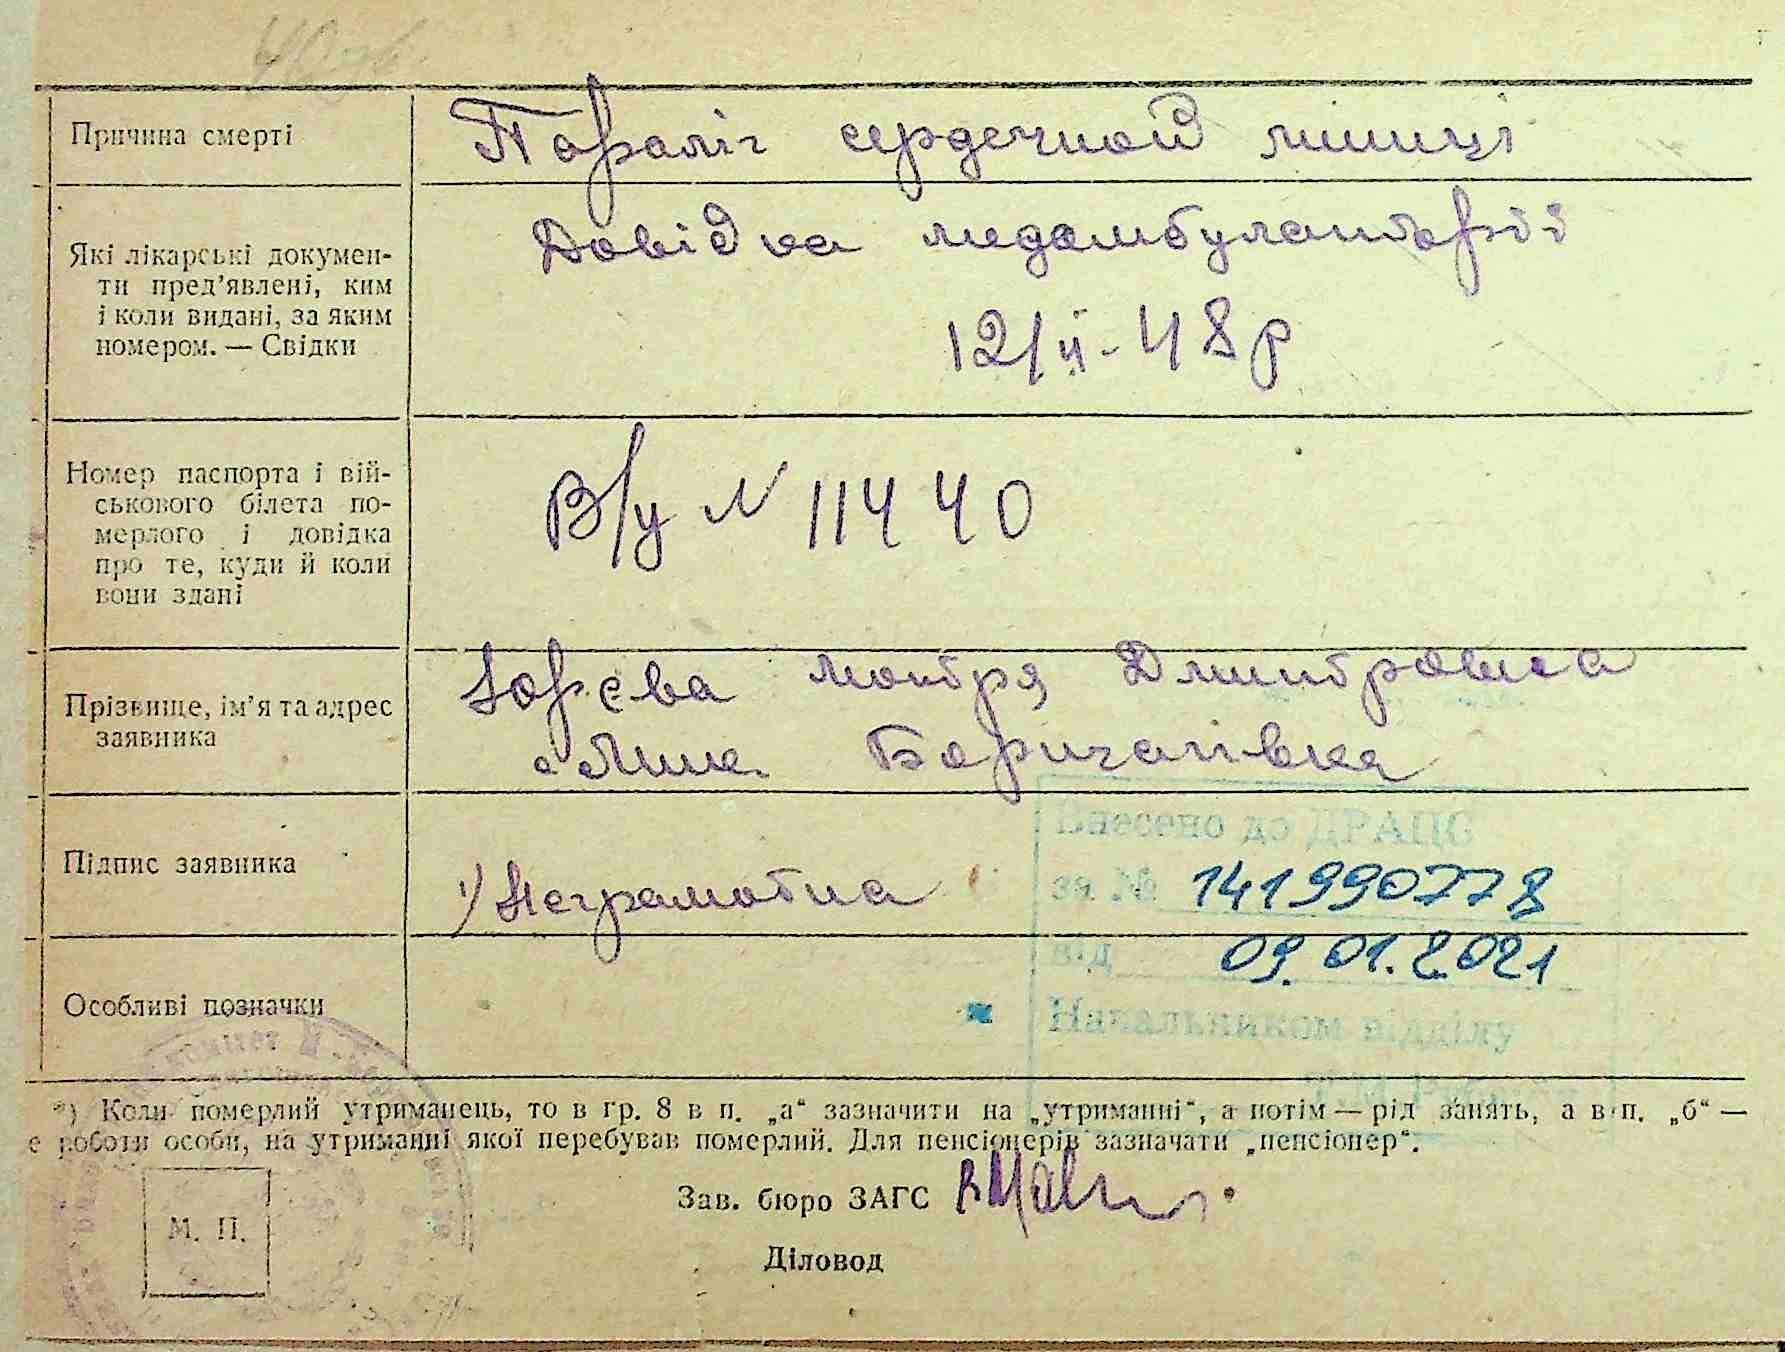 Причина смерті
Параліч сердечной мишці
Які лікарські докумен-
ти пред'явлені, ким
і коли видані, за яким
номером. — Свідки
Довідка медамбулаторії
12/ІІ-48р
Номер паспорта і вій-
ськового білета по-
мерлого і довідка
про те, куди й коли
вони здані
В/у N 11440
Прізвище, ім'я та адрес
заявника
Мотря Дмитровна
Підпис заявника
Неграмотна
Внесено до ДРАЦС
за № 141990778
від 09.01.2021
Начальником відділу
Особливі позначки
*) Коли померлий утриманець, то в гр. 8 в п. „а“ зазначити на „утриманні“, а потім — рід занять, а в п. „б“ —
е роботи особи, на утриманні якої перебував померлий. Для пенсіонерів зазначати „пенсіонер“.
М. П.
Зав. бюро ЗАГС
Діловод